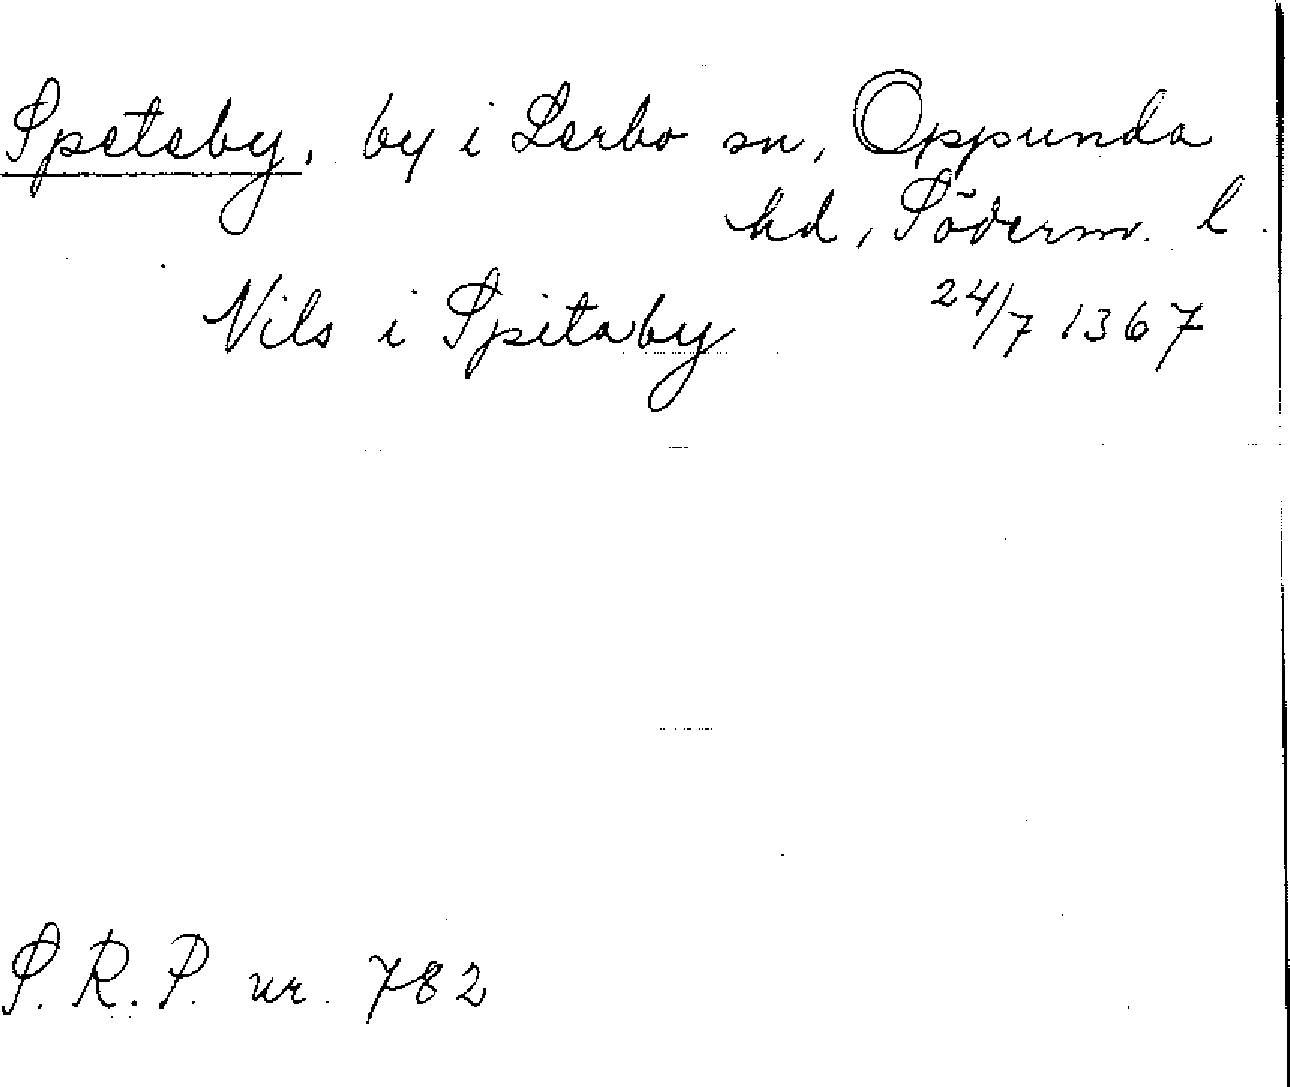 Speteby, by i Lerbo sn, Oppunda
hd, Söderm. l.
Nils i Spitaby 24/7 1367
S.R.P. nr. 782